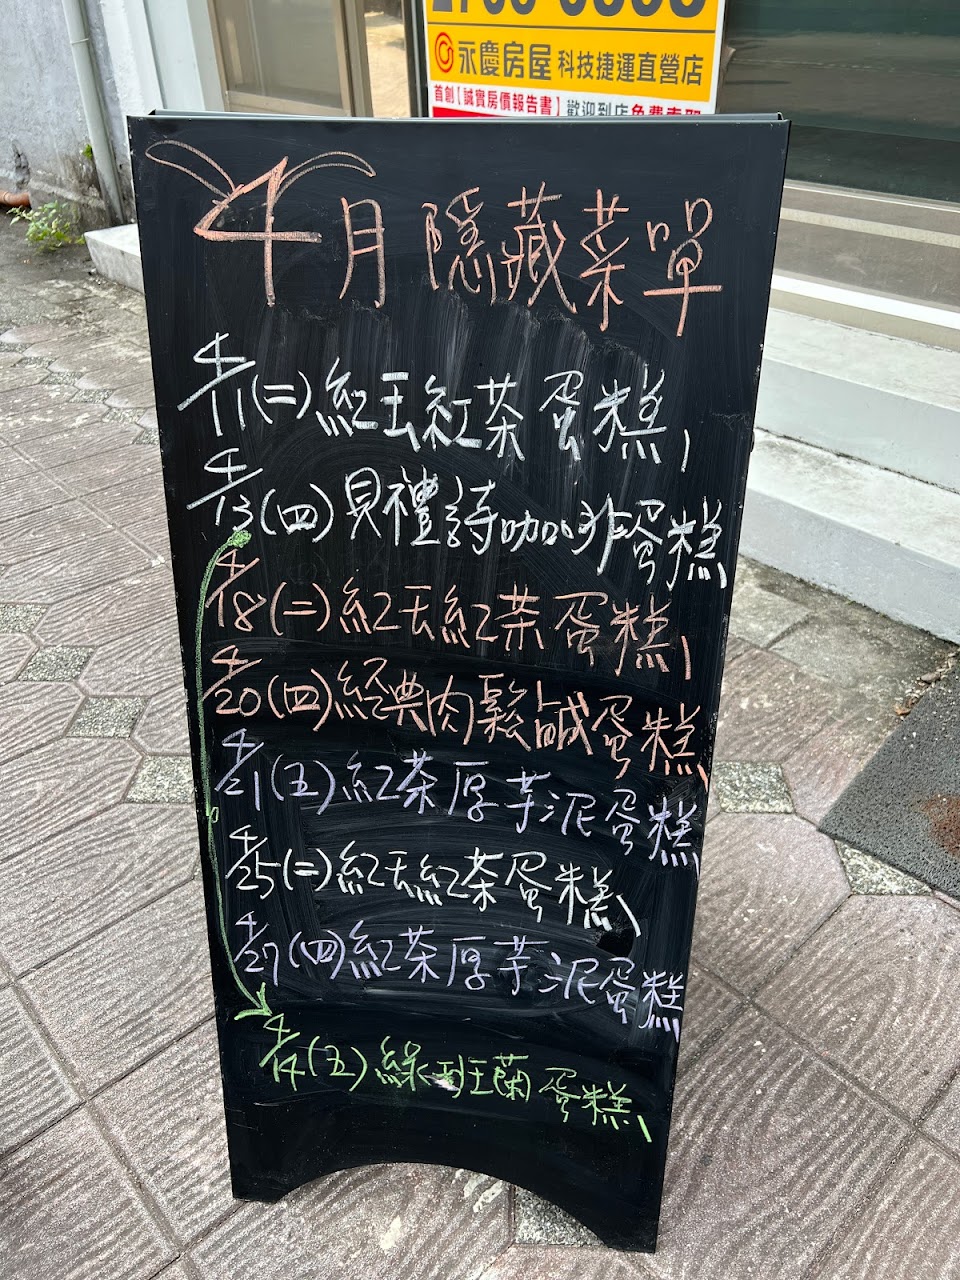 永慶房屋 科技捷運直營店
首創【誠實房價報告書】歡迎到店免費索取
4月隱藏菜單
4/11(二)紅玉紅茶蛋糕,
4/13(四)貝禮詩咖啡蛋糕
4/18(二)紅玉紅茶蛋糕,
4/20(四)經典肉鬆鹹蛋糕
4/21(五)紅茶厚芋泥蛋糕
4/25(二)紅玉紅茶蛋糕,
4/27(四)紅茶厚芋泥蛋糕
4/14(五)綠斑蘭蛋糕,